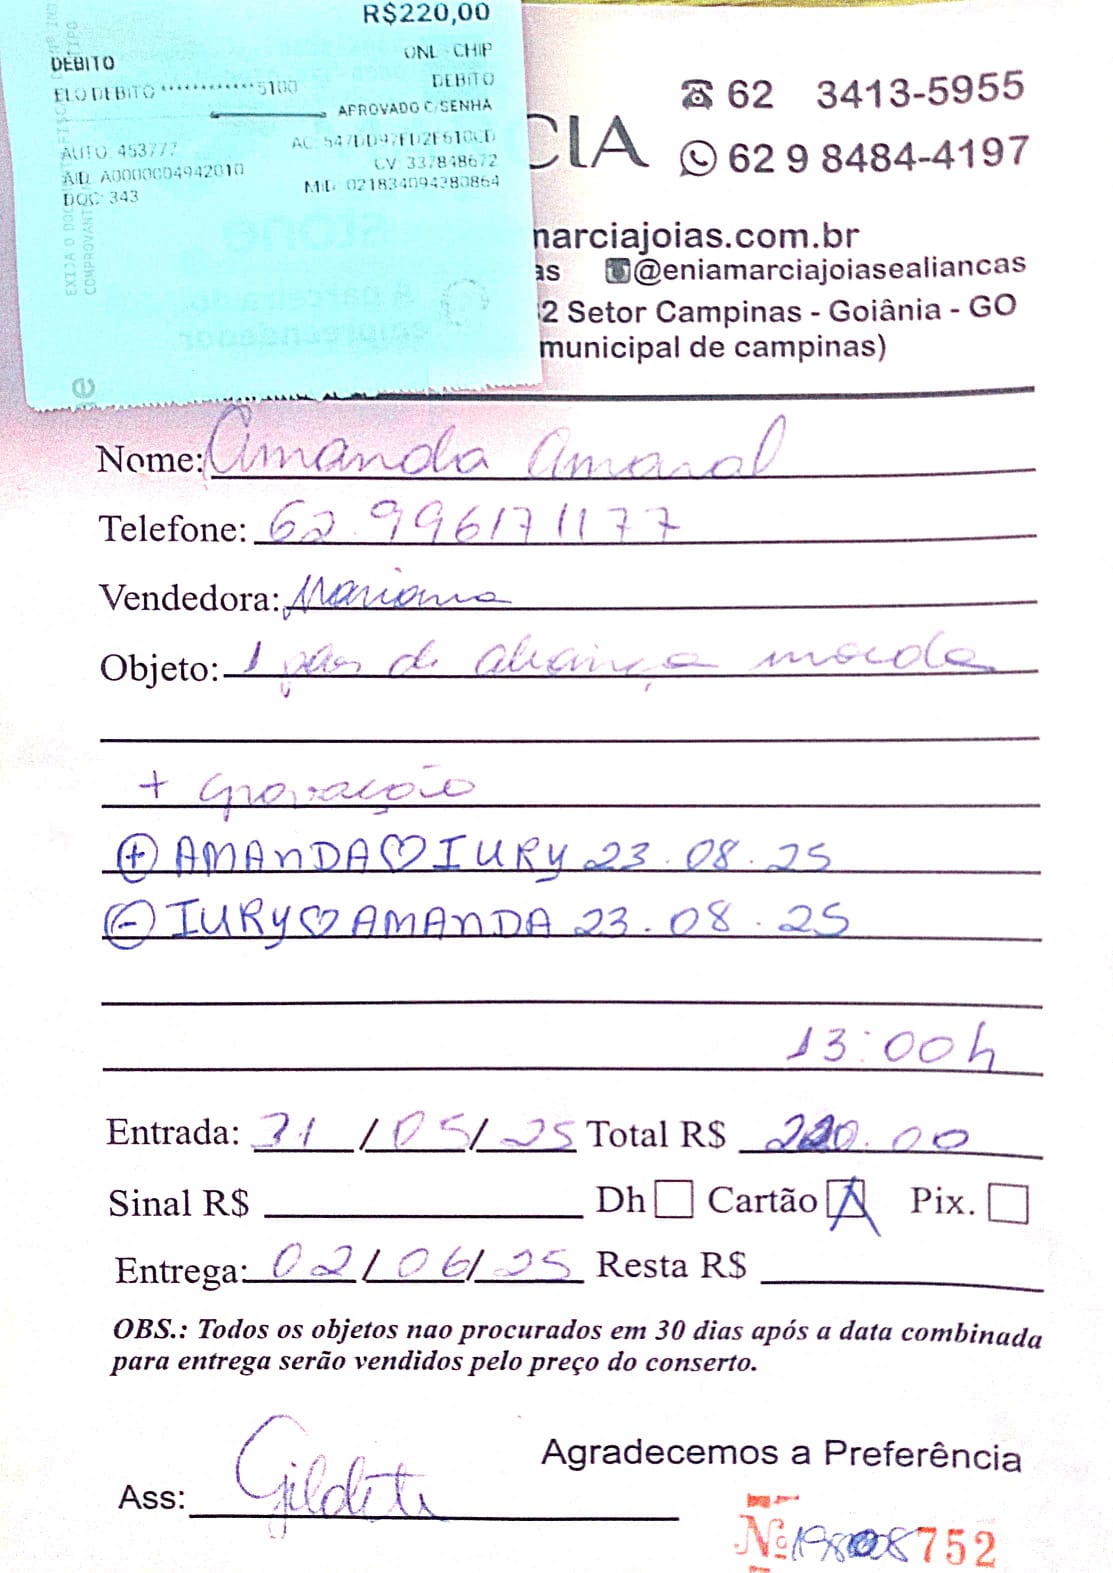 R$220,00
DÉBITO
ONL - CHIP
ELO DEBITO ************5100
DEBITO
APROVADO C/SENHA
AUTO: 453777
AC: 547DD97FD2F610CD
AID: A0000004942010
CV: 337848672
DOC: 343
MID: 021834094380864
stone
A parceira do
empreendedor
CIA
62 3413-5955
62 9 8484-4197
marciajoias.com.br
as @eniamarciajoiasealiancas
2 Setor Campinas - Goiânia - GO
municipal de campinas)
Nome: Amanda Amaral
Telefone: 62 996171177
Vendedora: Mariana
Objeto: 1 par de aliança moeda
+ gravação
(+) AMANDA♡IURY 23.08.25
(-) IURY♡AMANDA 23.08.25
13:00h
Entrada: 31/05/25 Total R$ 220.00
Sinal R$ Dh Cartão Pix.
Entrega: 02/06/25 Resta R$
OBS.: Todos os objetos nao procurados em 30 dias após a data combinada
para entrega serão vendidos pelo preço do conserto.
Agradecemos a Preferência
Ass: Gildete
Nº 752